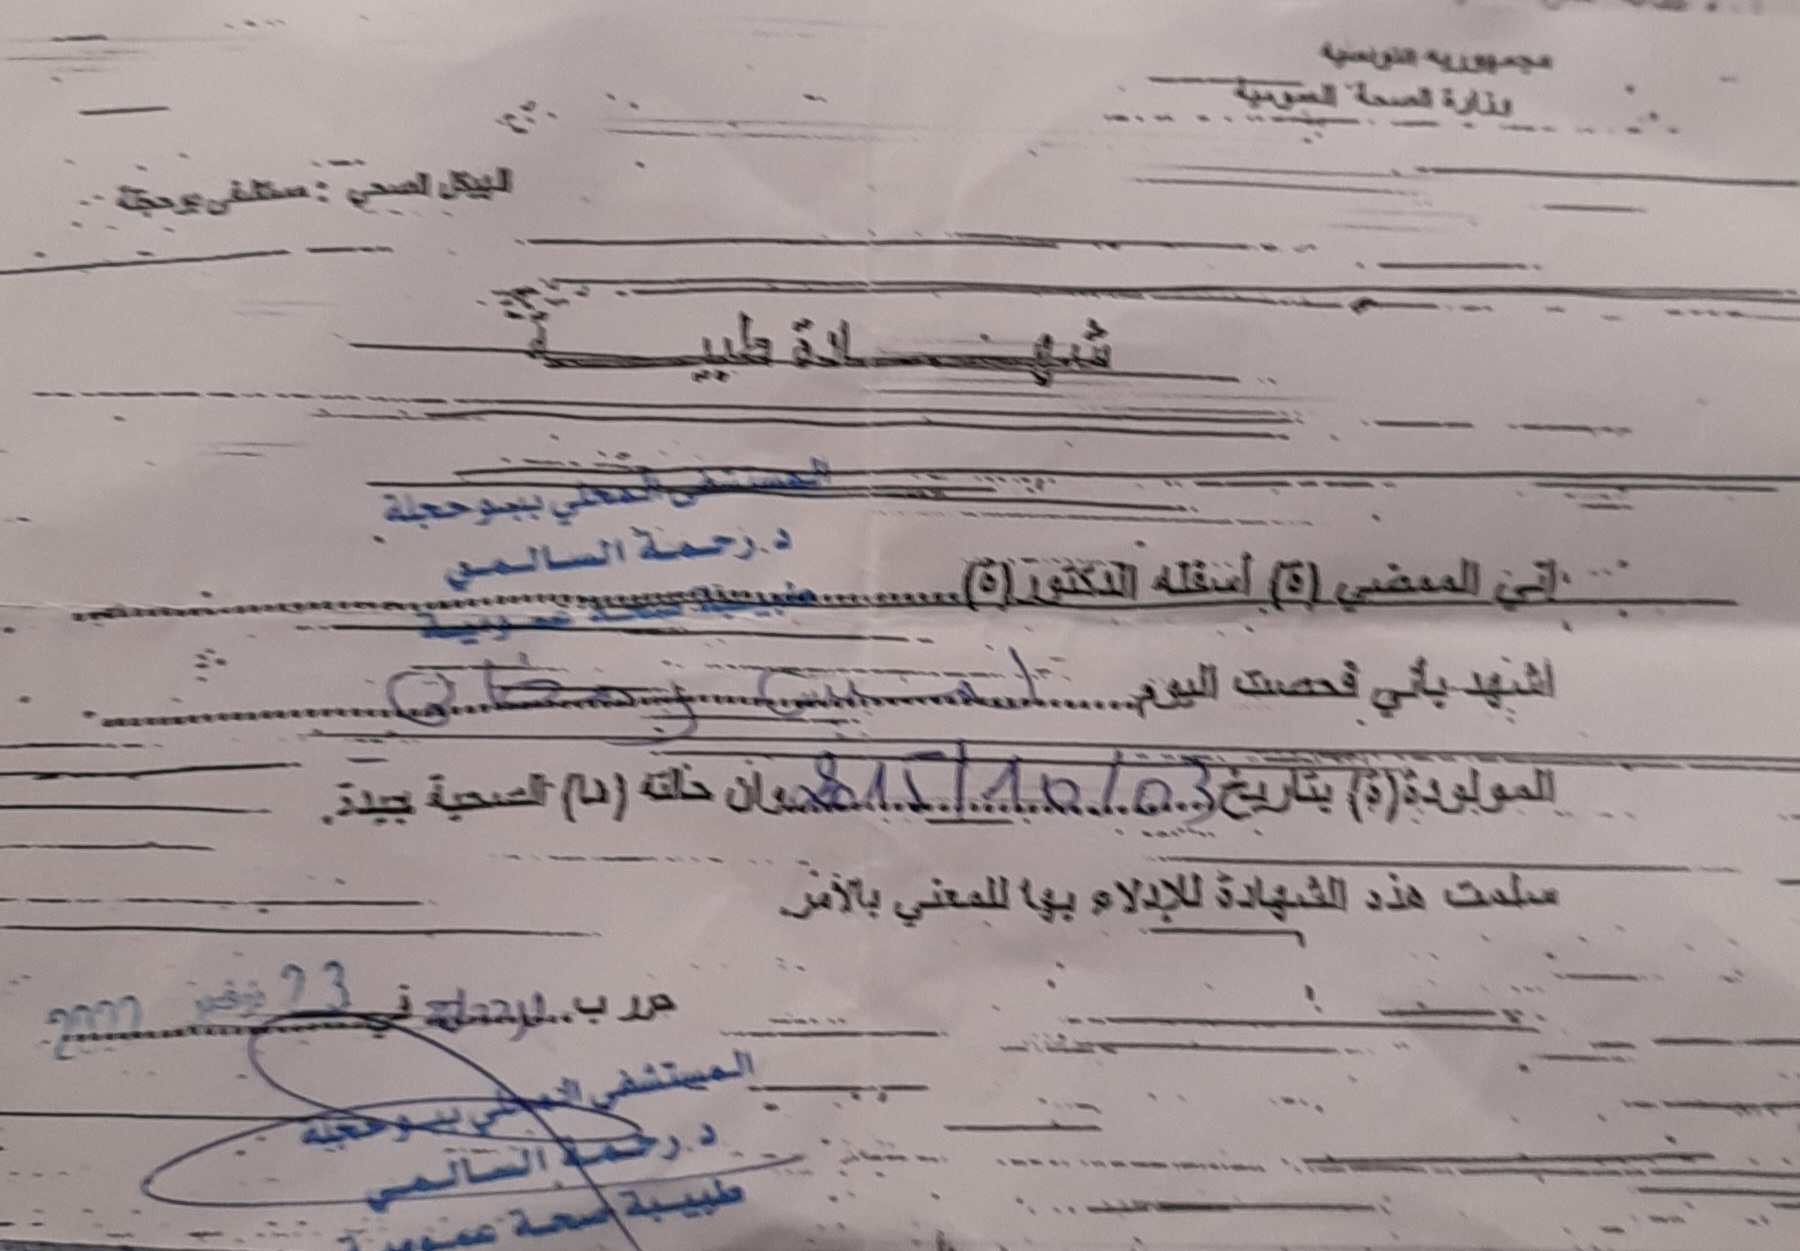 الجمهورية التونسية
وزارة الصحة العمومية
الهيكل الصحي : مستشفى بوحجلة
شهادة طبية
المستشفى المحلي ببوحجلة
د.رحمة السالمي
طبيبة صحة عمومية
إني الممضي (ة) أسفله الدكتور (ة)
أشهد بأني فحصت اليوم
المولودة(ة) بتاريخ 03/10/ وأن حالته (ها) الصحية جيدة.
سلمت هذه الشهادة للإدلاء بها للمعني بالأمر.
حرر ب بوحجلة في 23 نوفمبر 2022
المستشفى المحلي ببوحجلة
د.رحمة السالمي
طبيبة صحة عمومية